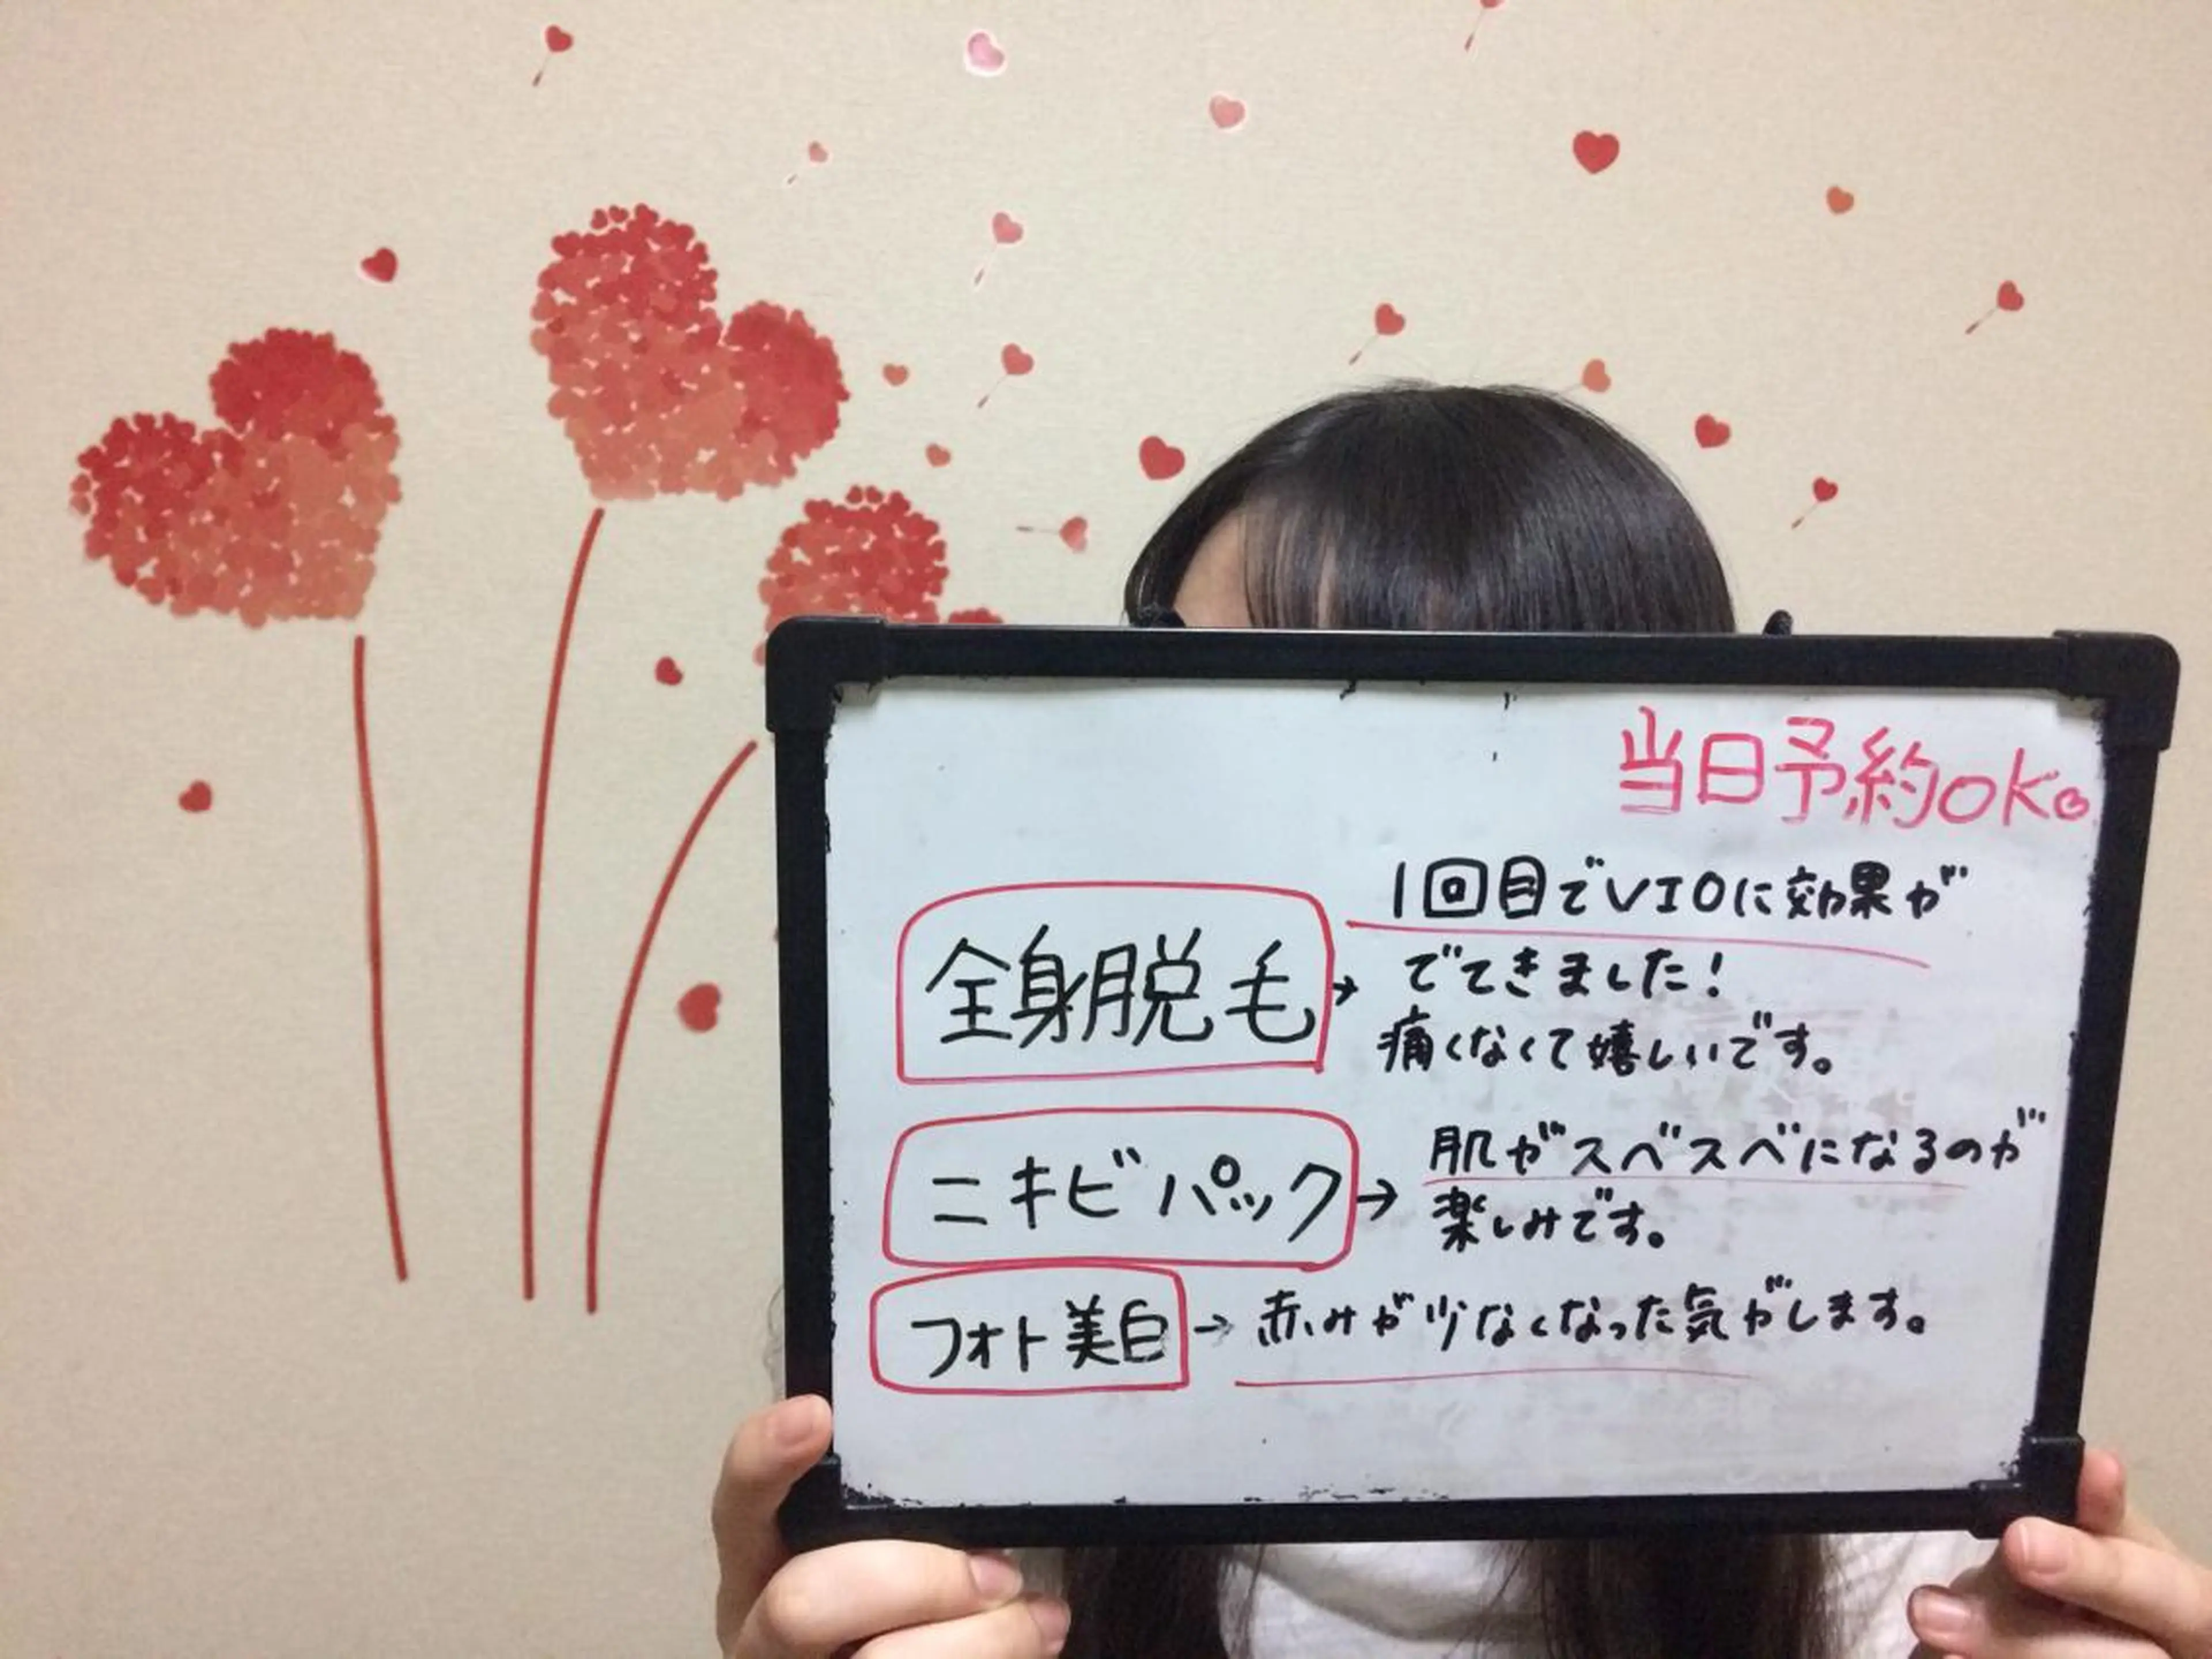 当日予約OK。
全身脱毛→
1回目でVIOに効果が
でてきました!
痛くなくて嬉しいです。
ニキビパック→
肌がスベスベになるのが
楽しみです。
フォト美白→赤みが少なくなった気がします。